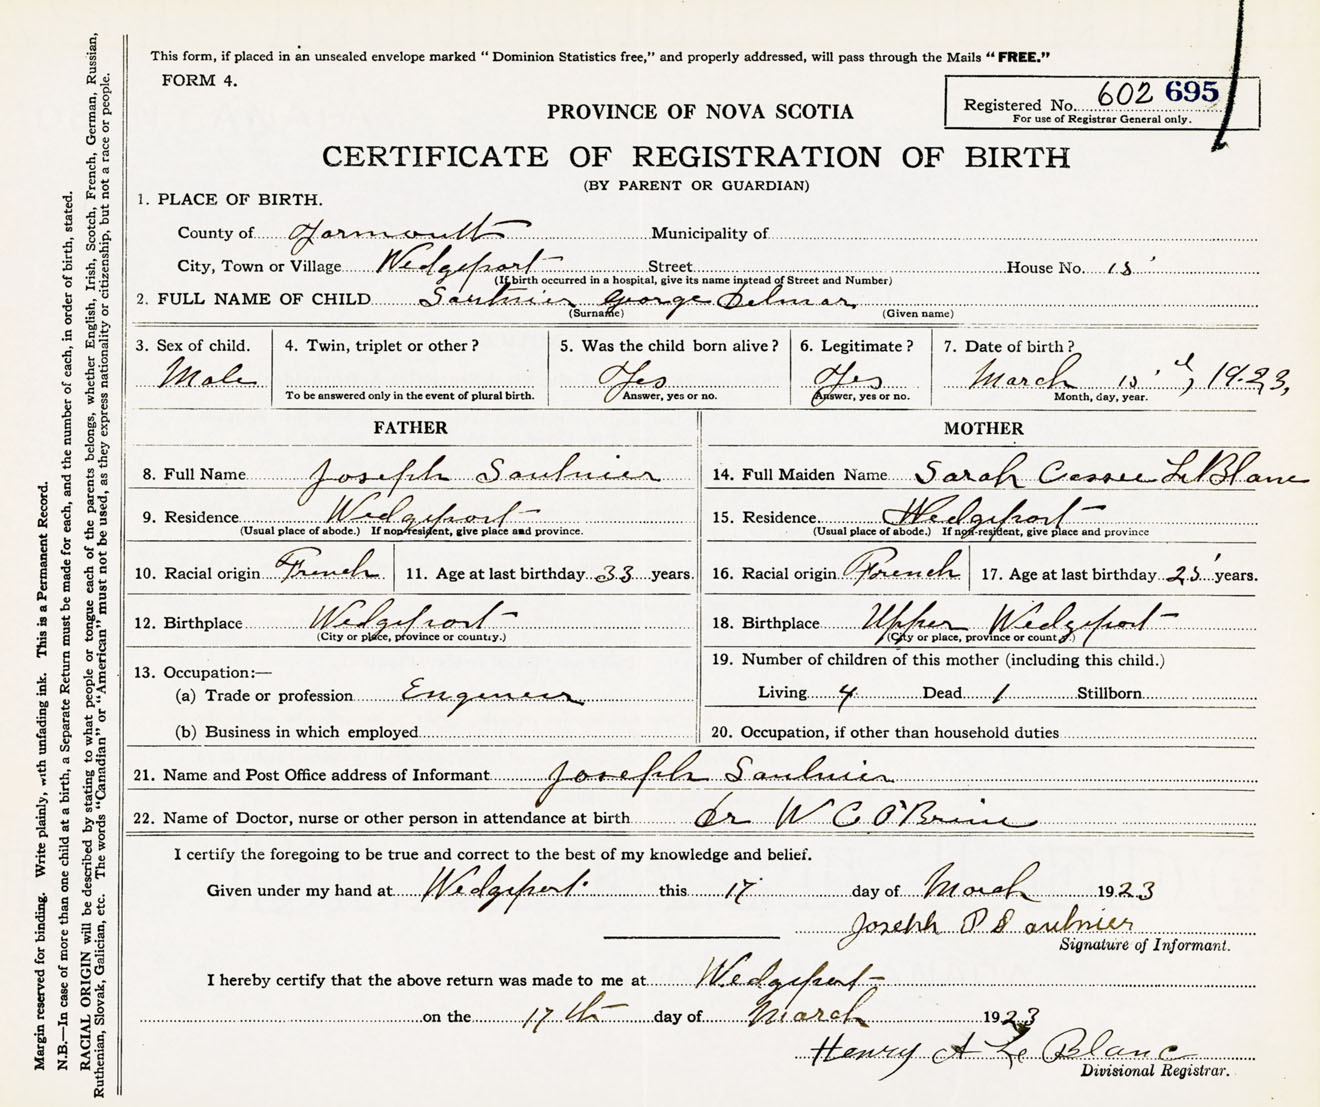 This form, if placed in an unsealed envelope marked "Dominion Statistics free," and properly addressed, will pass through the Mails "FREE."
FORM 4.
Registered No. 602 695
For use of Registrar General only.
PROVINCE OF NOVA SCOTIA
CERTIFICATE OF REGISTRATION OF BIRTH
(BY PARENT OR GUARDIAN)
1. PLACE OF BIRTH.
County of Yarmouth Municipality of
City, Town or Village Wedgeport Street House No. 15
(If birth occurred in a hospital, give its name instead of Street and Number)
2. FULL NAME OF CHILD Saulnier George Delmar
(Surname) (Given name)
3. Sex of child. 4. Twin, triplet or other? 5. Was the child born alive? 6. Legitimate? 7. Date of birth?
Male Yes Yes March 15, 1923,
To be answered only in the event of plural birth. Answer, yes or no. Answer, yes or no. Month, day, year.
FATHER MOTHER
8. Full Name Joseph Saulnier 14. Full Maiden Name Sarah LeBlanc
9. Residence Wedgeport 15. Residence Wedgeport
(Usual place of abode.) If non-resident, give place and province. (Usual place of abode.) If non-resident, give place and province
10. Racial origin French 11. Age at last birthday 33 years. 16. Racial origin French 17. Age at last birthday 25 years.
12. Birthplace Wedgeport 18. Birthplace Upper Wedgeport
(City or place, province or country.) (City or place, province or count y.)
19. Number of children of this mother (including this child.)
13. Occupation:—
(a) Trade or profession Engineer Living 4 Dead 1 Stillborn
(b) Business in which employed 20. Occupation, if other than household duties
21. Name and Post Office address of Informant Joseph Saulnier
22. Name of Doctor, nurse or other person in attendance at birth Dr W C O'Brine
I certify the foregoing to be true and correct to the best of my knowledge and belief.
Given under my hand at Wedgeport this 17 day of March 1923
Joseph P Saulnier
Signature of Informant.
I hereby certify that the above return was made to me at Wedgeport
on the 17th day of March 1923
Henry A Le Blanc
Divisional Registrar.
Margin reserved for binding. Write plainly, with unfading ink. This is a Permanent Record.
N.B.—In case of more than one child at a birth, a Separate Return must be made for each, and the number of each, in order of birth, stated.
RACIAL ORIGIN will be described by stating to what people or tongue each of the parents belongs, whether English, Irish, Scotch, French, German, Russian,
Ruthenian, Slovak, Galician, etc. The words "Canadian" or "American" must not be used, as they express nationality or citizenship, but not a race or people.